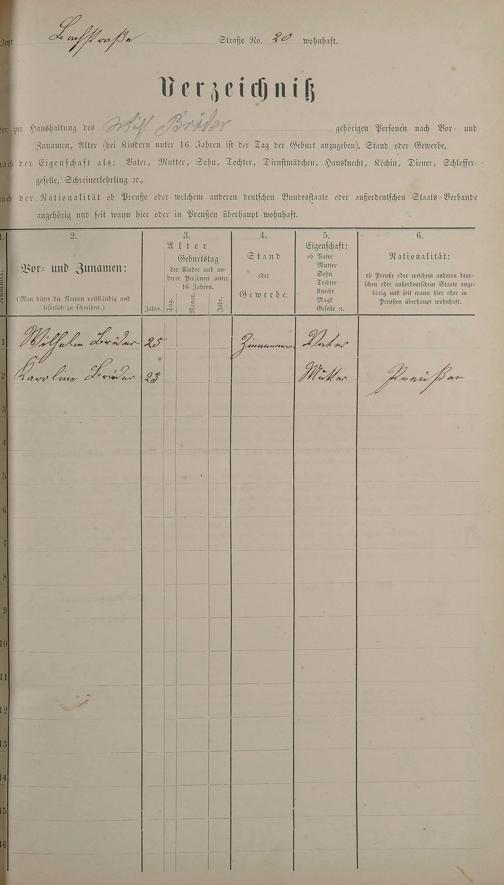 Bachstraße Straße No. 20 wohnhaft.
Verzeichniß
der zur Haushaltung des Wilh Bröder gehörigen Personen nach Vor- und
Zunamen, Alter (bei Kindern unter 16 Jahren ist der Tag der Geburt anzugeben), Stand oder Gewerbe,
nach der Eigenschaft als: Vater, Mutter, Sohn, Tochter, Dienstmädchen, Hausknecht, Köchin, Diener, Schlosser-
geselle, Schreinerlehrling ꝛc.,
nach der Nationalität ob Preuße oder welchem anderen deutschen Bundesstaate oder außerdeutschen Staats-Verbande
angehörig und seit wann hier oder in Preußen überhaupt wohnhaft.
1. 2. 3. 4. 5. 6.
Nummer.
Vor- und Zunamen:
(Man bittet die Namen vollständig und
leserlich zu schreiben.)
Alter
Geburtstag
der Kinder und an-
derer Personen unter
16 Jahren.
Jahre. Tag. Monat. Jahr.
Stand
oder
Gewerbe.
Eigenschaft:
ob Vater
Mutter
Sohn
Tochter
Knecht
Magd
Geselle ꝛc.
Nationalität:
ob Preuße oder welchem anderen deut-
schen oder außerdeutschem Staate ange-
hörig und seit wann hier oder in
Preußen überhaupt wohnhaft.
1 Wilhelm Bröder 25 Zimmermann Vater
2 Karoline Bröder 23 Mutter Preußen
3
4
5
6
7
8
9
10
11
12
13
14
15
16